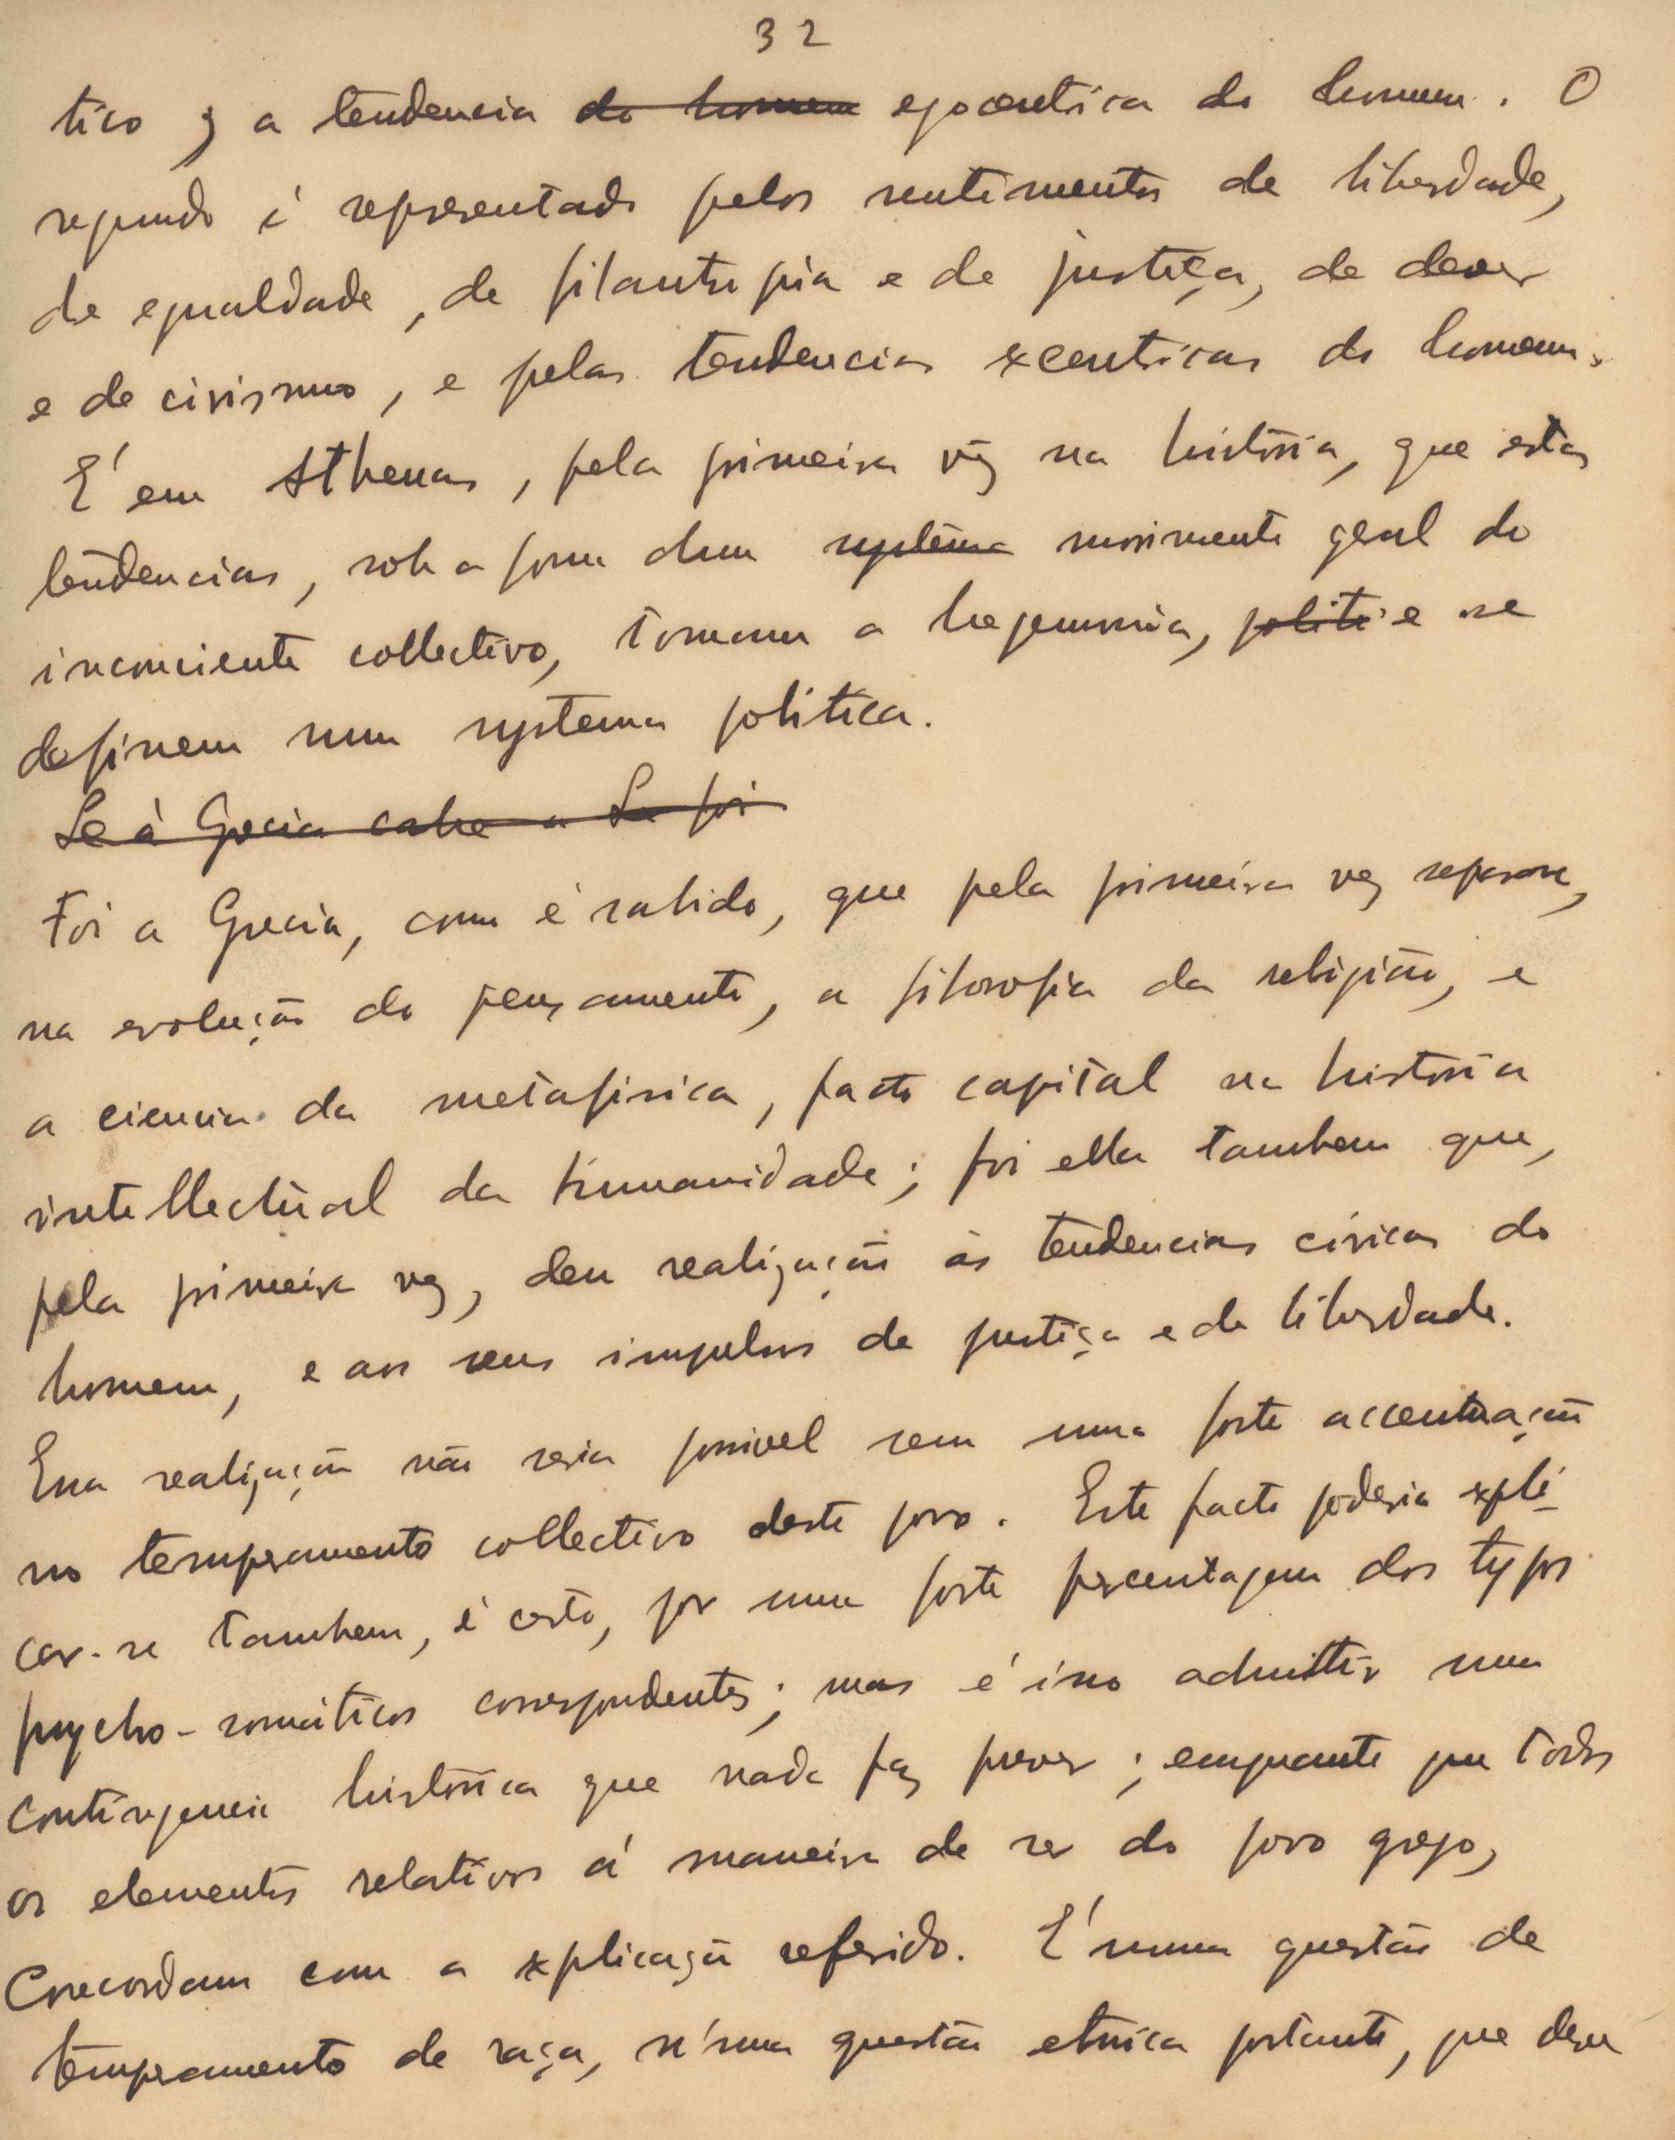 32
tico ; a tendencia do homem egocentrica do homem. O
segundo é representado pelos sentimentos de liberdade,
de egualdade, de filantropia e de justiça, de dever
e de civismo, e pelas tendencias excentricas do homem.
É em Athenas, pela primeira vêz na história, que estas
tendencias, sob a forma dum systema movimento geral do
inconsciente collectivo, tomam a hegemonia, politi e se
definem num systema politica.
Se à Grecia cabe a Se foi
Foi a Grecia, como é sabido, que pela primeira vez separou,
na evolução do pensamento, a filosofia da religião, e
a ciencia da metafisica, facto capital na história
intellectual da humanidade; foi ella tambem que,
pela primeira vez, deu realização ás tendencias civicas do
homem, e aos seus impulsos de justiça e de liberdade.
Essa realização não seria possivel sem uma forte accentuação
no temperamento collectivo deste povo. Este facto poderia expli-
car-se tambem, é certo, por uma forte percentagem dos typos
psycho-somáticos correspondentes; mas é isso admittir uma
contingencia histórica que nada faz prever; emquanto que todos
os elementos relativos á maneira de ser do povo grego,
Concordam com a explicação referido. É numa questão de
temperamento de raça, n'uma questão etnica portanto, que deve